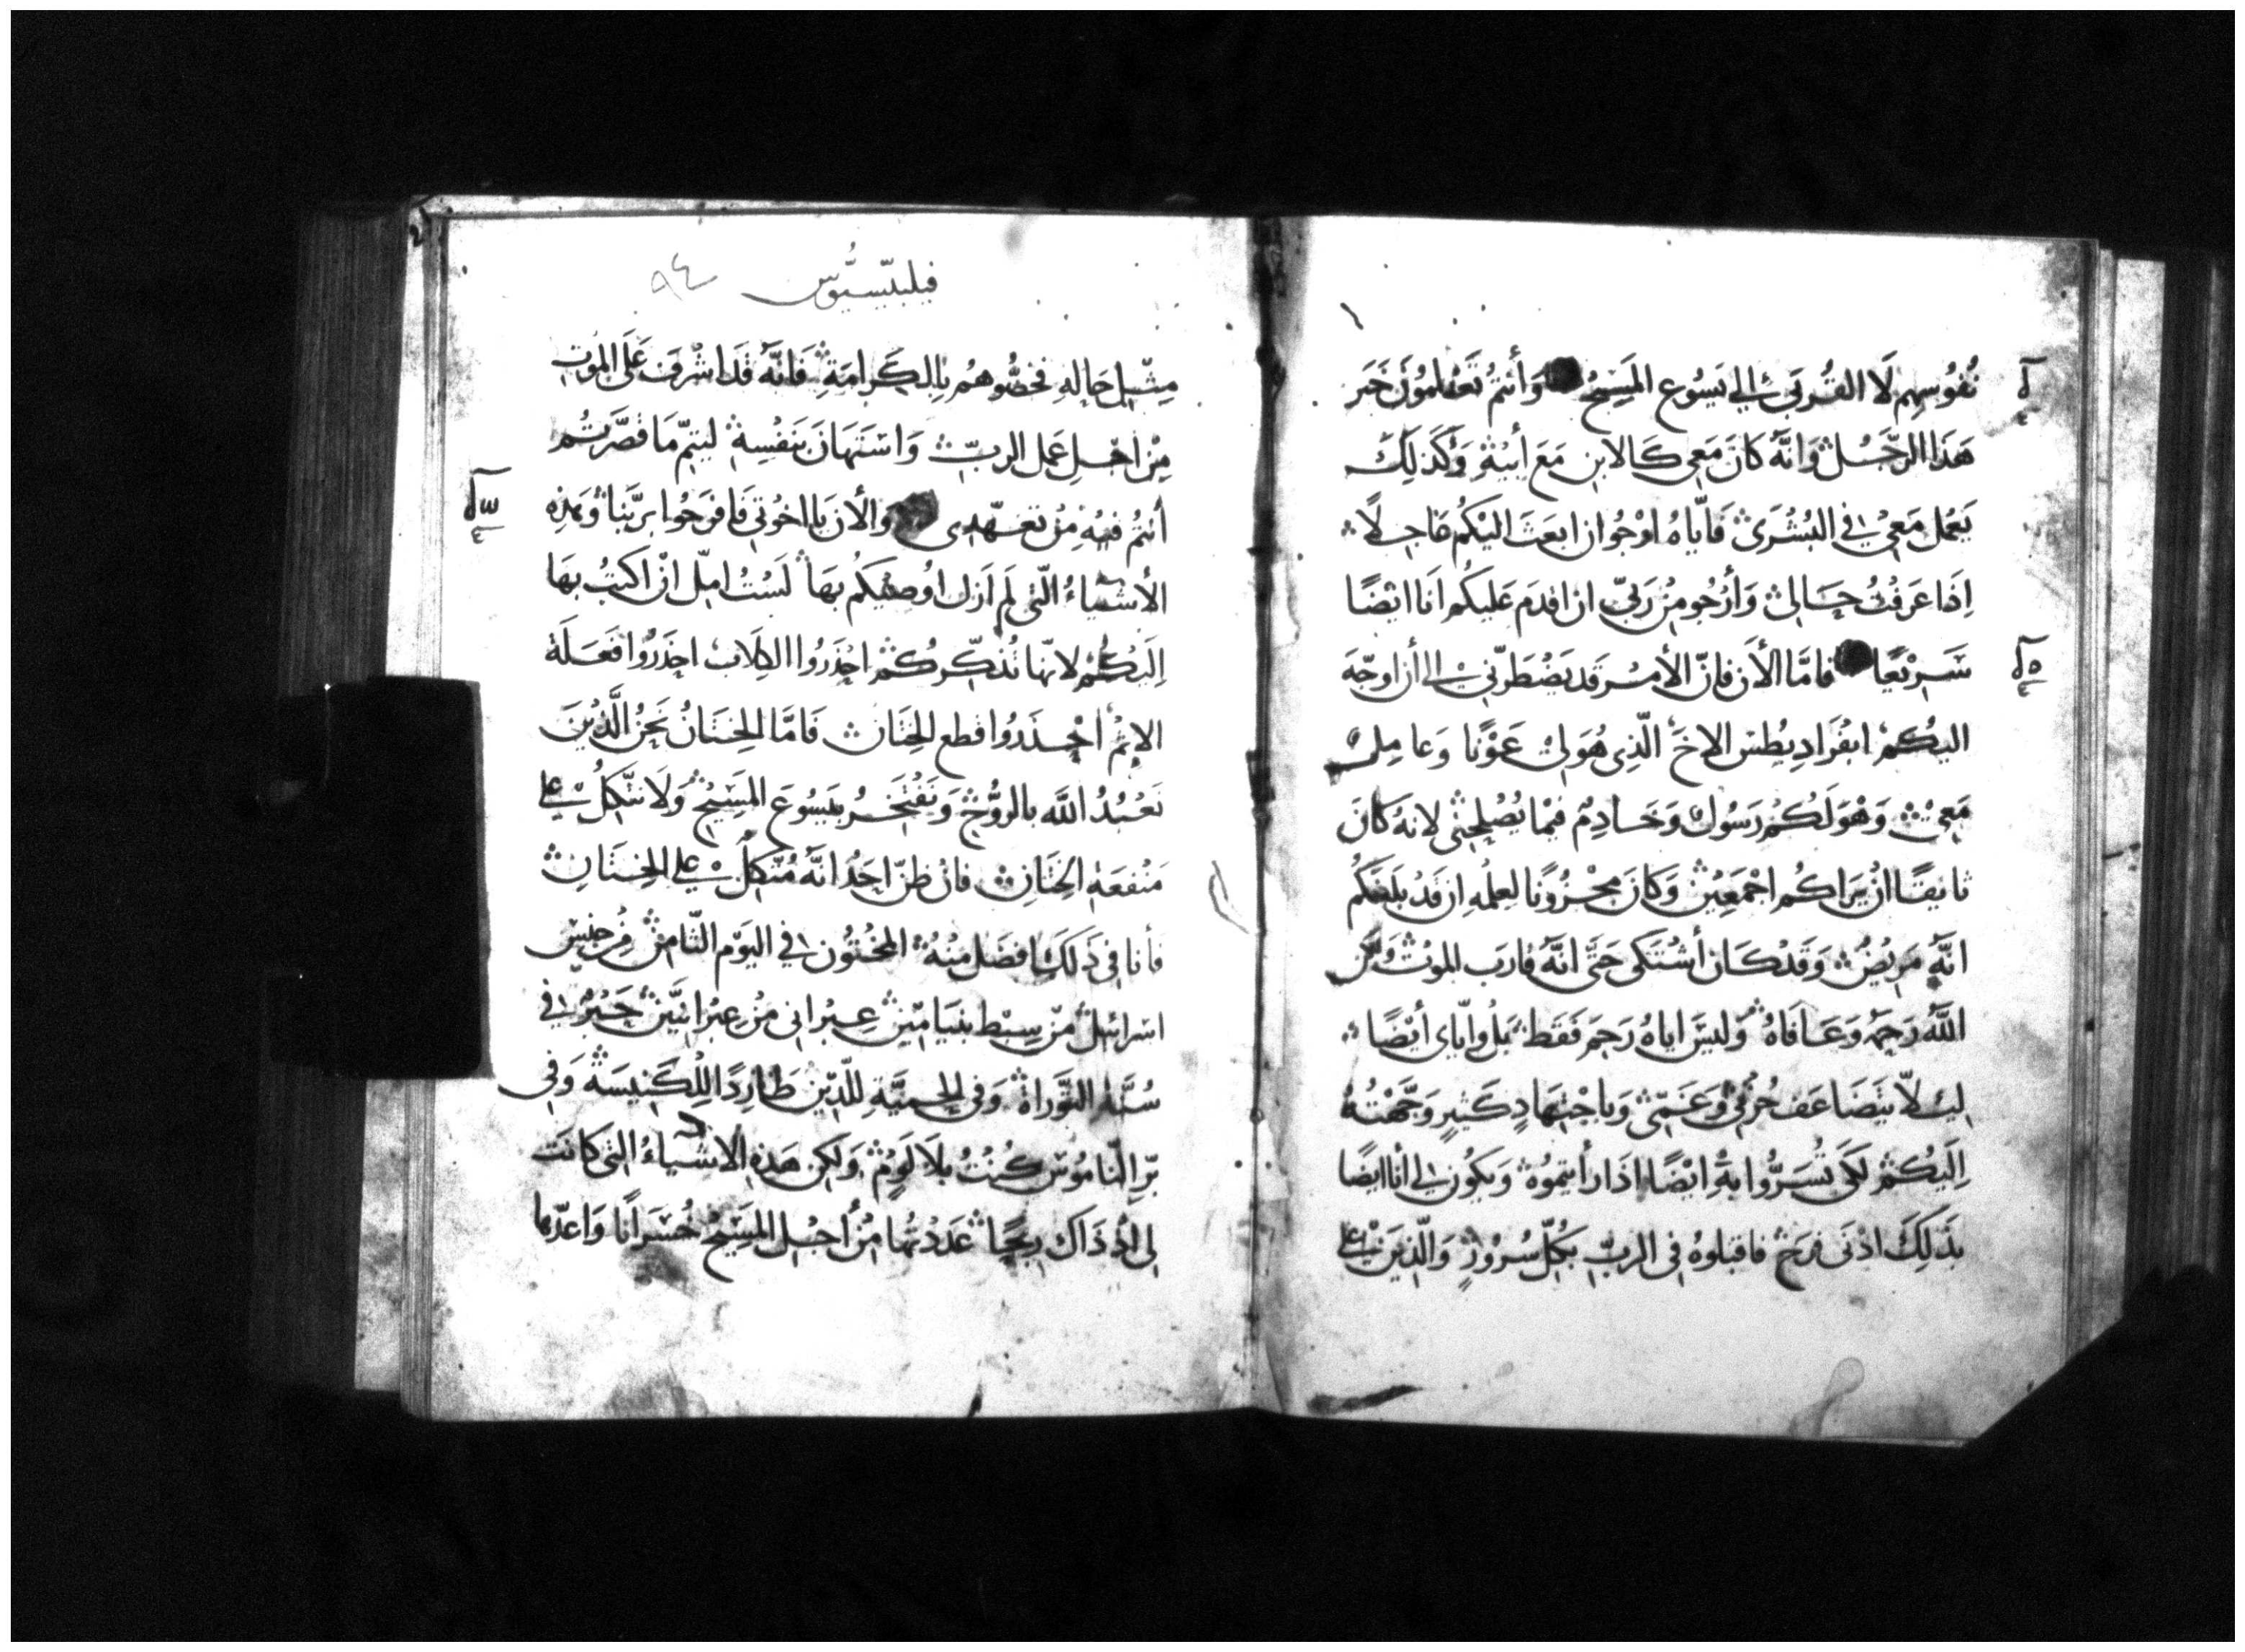 نُفُوسِهِم لَا القُربَى الى يَسُوع المَسِيحُ وَأنتمُ تَعْلَمُونَ خَبَر
هَذَا الرّجُل وَانَّهُ كانَ مَعِى كَالابن مَعَ أبيْهِ وَكَذلِكَ
يَعْمل مَعِىْ فى البُشْرَى فَايّاهُ اوْجُوا ان ابعَثَ اليْكُم عَاجِلًا
اِذا عَرَفْتُ حَالى وَأرْجُو مِنْ رَبىّ ان اقدَم عَليكُم انَا ايْضًا
سَرِيْعًا فامَّا الأن فانّ الأمْر قَد يَضْطَرّنى الى أن اوجّهَ
اليكُمْ ابفْرَادِيطُس الاخَ الّذِى هُوَ لى عَوْنًا وَعامِل
مَعِىْ وَهْوَ لَكُمْ رَسُول وَخَادِمْ فيْمَا يُصْلِحنى لانهُ كانَ
تايقًا انْ يَرَاكُم اجْمَعِيْن وَكانَ مَحْزُونًا لعِلمْهِ ان قَدْ بَلَغَكُم
انَّهُ مَرِيْضْ وَقَدْ كَان أشْتَكى حَتَّى انَّهُ قارَب الموْتْ وَلكن
اللَّهُ رَحِمَهُ وَعَافَاهُ وَليسَ اياهُ رَحِمَ فَقَطْ بَلْ وايّاى أيْضًا
ليلا يتَضَاعَف حُزْنى وَغَمّى وَبِاجْتِهَادٍ كَثيرٍ وَجَّهْتُهُ
اِلَيْكُمْ لكَى تُسَرُّوا بهِ ايْضًا اذَا رأيتموُه وَيكُون لى أنا ايضًا
بذَلِكَ ادْنَى فرَحْ فاقبلوهُ فى الربّ بكُلّ سُرُوْرٍ وَالّذِيَن على
فيلبيّسيوُّس ٩٤
مِثْل حَالهِ فخصُّوهُم بِالكَرَامَةِ فَانَّهُ قَد اشْرفَ عَلَى الموْت
مِنْ اجْلِ عَمل الربّ وَاسْتَهَانَ بنَفْسِهْ ليتمّ مَا قصَّرتُم
أنتُم فيْهِ مِنْ تعَهّدِى وَالأن يَا اخوُتى فَافرَحُوا برَبّنا وَهذِه
الأشْيَاءُ الّتى لم ازَل اوُصيْكُم بهَا لَسْتُ امِلّ انْ اكتبُ بهَا
اِلَيْكُمْ لانّها تُذكّركُمْ احْذَرُوا الكِلابْ احذَرُوا فَعَلَة
الاثمْ احْذَرُوا قطع الخِتَان فَامَّا الخِتانُ نَحنُ الَّذِيْنَ
نَعْبُدُ اللَّه بالرُّوْح وَنَفْتَخرُ بيَسُوعَ المَسِيْحْ وَلَا نتّكِلُ على
مَنْفعَةِ الخِتانِ فانْ ظنّ احَدُ انَّهُ مُتَّكِلْ على الخِتَانِ
فأنا فى ذَلَك افضَل مِنْهُ المخْتُوْن فى اليَوْم الثّامنْ مِنْ جنِسْ
اسْرائيلْ مِنْ سِبْط بنيَامِيْن عِبْرانى مِنْ عِبْرانيَّيْن حَبْرُ فى
سُنَّة التوَّراةْ وَفى الحمِيَّةِ للدّيْنِ طَارِدًا لِلكَنِيسَةْ وَفى
بّرِ النّامُوْسْ كُنْتُ بلَا لَوْمٍ وَلكِن هَذِهِ الاشْيَاءُ التى كانَت
لى اذْ ذَاك رِبحًا عَدَدْتُها مِنْ أجْل المَسِيْحْ خُسْرَانًا وَاعدّها